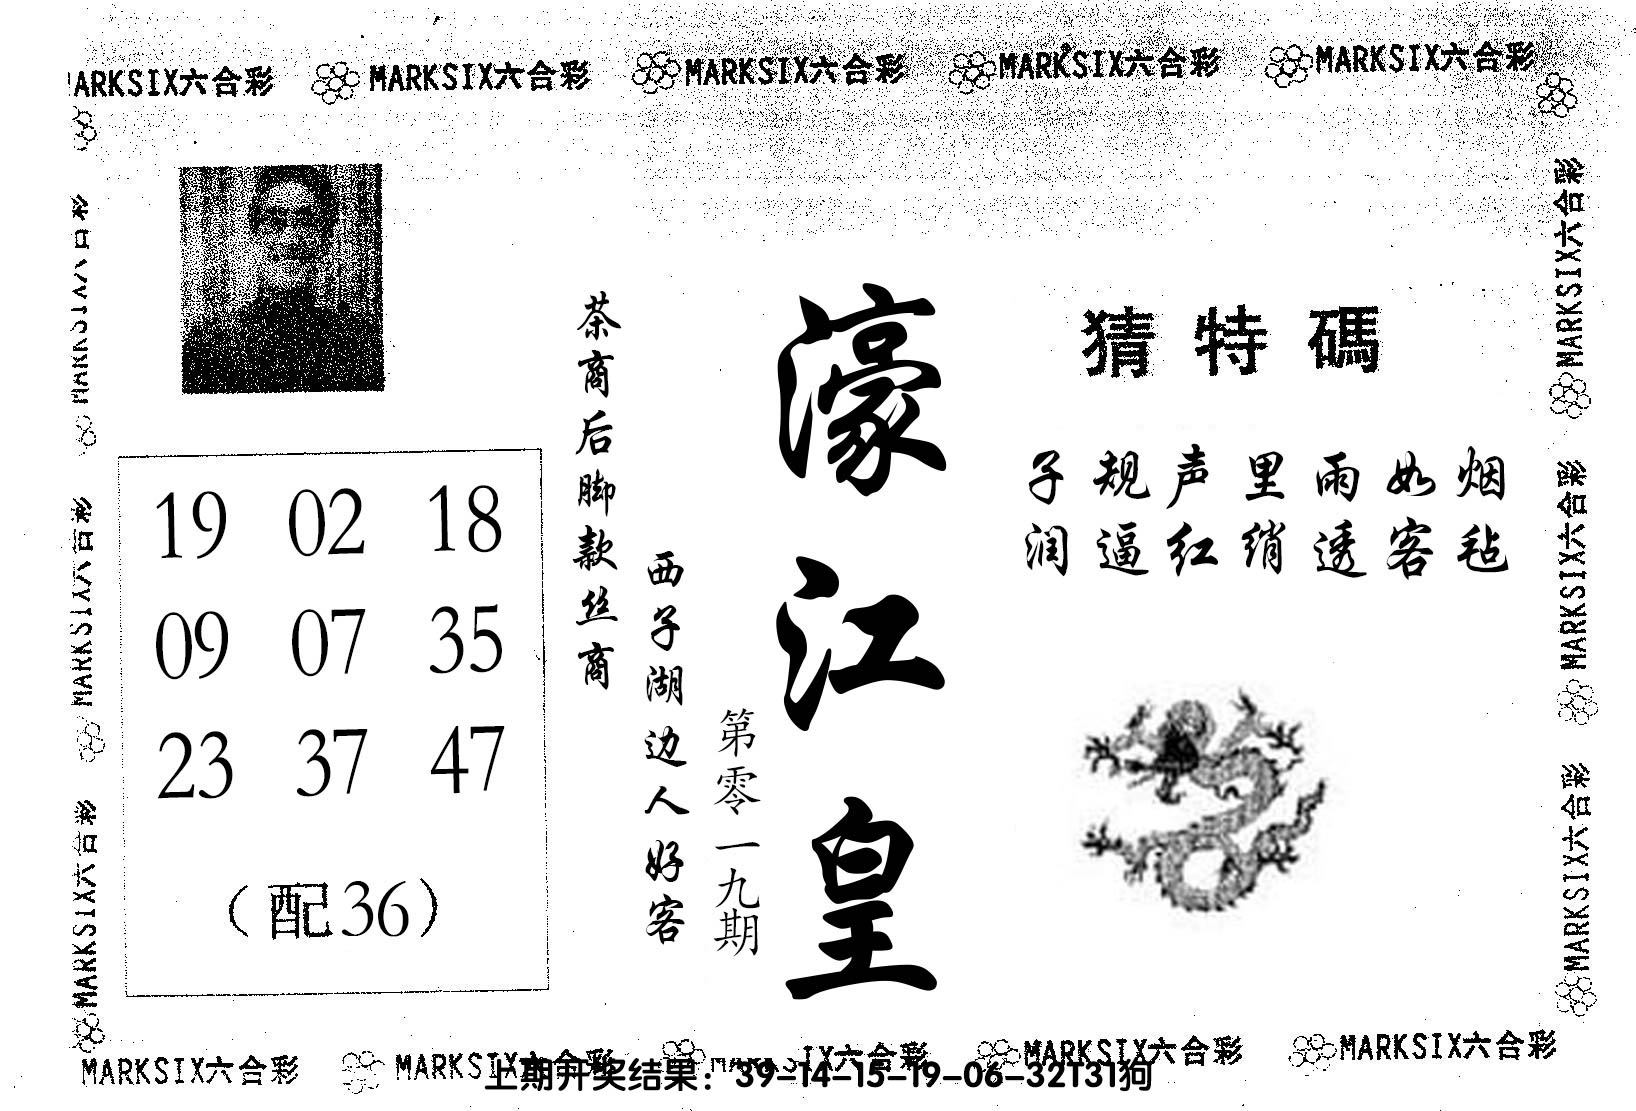 MARKSIX六合彩 MARKSIX六合彩 MARKSIX六合彩 MARKSIX六合彩 MARKSIX六合彩
MARKSIX六合彩
MARKSIX六合彩
MARKSIX六合彩
19 02 18
09 07 35
23 37 47
（配36）
茶商后脚款丝商
西子湖边人好客
第零一九期
濠江皇
猜特碼
子规声里雨如烟
润逼红绡透客毡
MARKSIX六合彩
MARKSIX六合彩
MARKSIX六合彩
MARKSIX六合彩 MARKSIX六合彩 MARKSIX六合彩 MARKSIX六合彩 MARKSIX六合彩
上期开奖结果：39-14-15-19-06-32T31狗